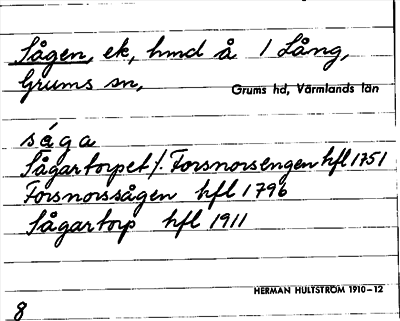 Sågen, ek, hmd å 1 Lång,
Grums sn,
Grums hd, Värmlands län
sǻga
Sågartorpet /. Forsnorsengen hfl 1751
Forsnorssågen hfl 1796
Sågartorp hfl 1911
HERMAN HULTSTRÖM 1910–12
8